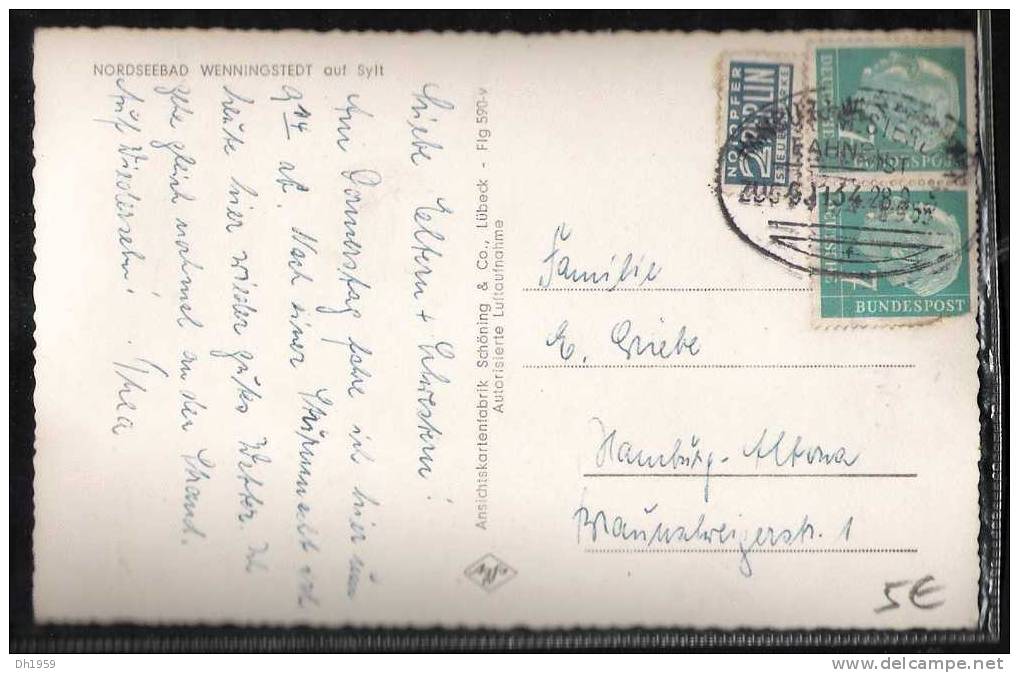 NORDSEEBAD WENNINGSTEDT auf Sylt
Liebe Eltern + Schwestern!
Am Donnerstag fahre ich hier um
9 14 ab. Nach einer Sturmnacht
heute hier wieder gutes Wetter. Ich
gehe gleich nochmal an den Strand.
Auf Wiedersehn! Thea
Ansichtskartenfabrik Schöning & Co., Lübeck - Flg 590-v
Autorisierte Luftaufnahme
NOTOPFER
2 BERLIN
STEUERMARKE
BUNDESPOST
7
BUNDESPOST
BAHNPOST
ZUG
Familie
E. Griebe
Hamburg-Altona
Braunschweigerstr. 1
5€
DH1959
www.delcampe.net